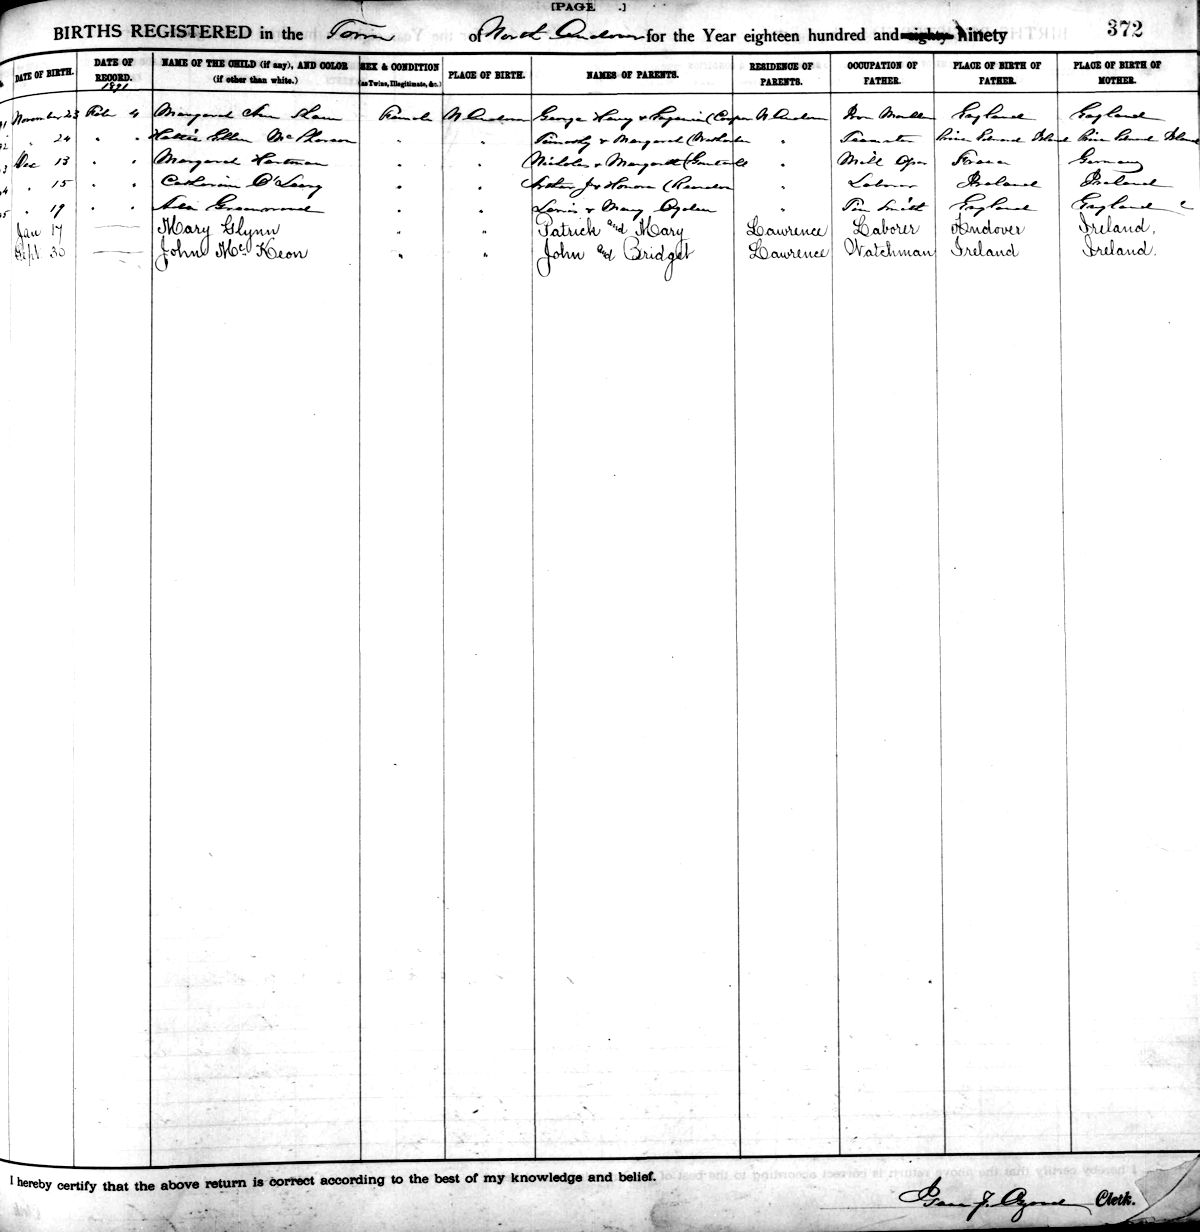 [PAGE .]
BIRTHS REGISTERED in the Town of North Andover for the Year eighteen hundred and eighty Ninety 372
DATE OF BIRTH. DATE OF RECORD. 1891 NAME OF THE CHILD (if any), AND COLOR (if other than white.) SEX & CONDITION (as Twins, Illegitimate, &c.) PLACE OF BIRTH. NAMES OF PARENTS. RESIDENCE OF PARENTS. OCCUPATION OF FATHER. PLACE OF BIRTH OF FATHER. PLACE OF BIRTH OF MOTHER.
91 November 23 Feb 4 Margaret Ann Female N Andover George Henry & N Andover Iron England England
92 " 24 " " Hattie Ellen McPherson " " Timothy & Margaret " Teamster Prince Edward Island Prince Edward Island
93 Dec 13 " " Margaret Hartman " " Nicholas & Margaret " Mill Oper France Germany
94 " 15 " " Catherine O'Leary " " & Honora " Laborer Ireland Ireland
95 " 19 " " Ada Greenwood " " Lewis & Mary Ogden " Tin Smith England England
Jan 17 Mary Glynn " " Patrick and Mary Lawrence Laborer Andover Ireland.
Sept 30 John McKeon " " John and Bridget Lawrence Watchman Ireland Ireland.
I hereby certify that the above return is correct according to the best of my knowledge and belief.
Clerk.